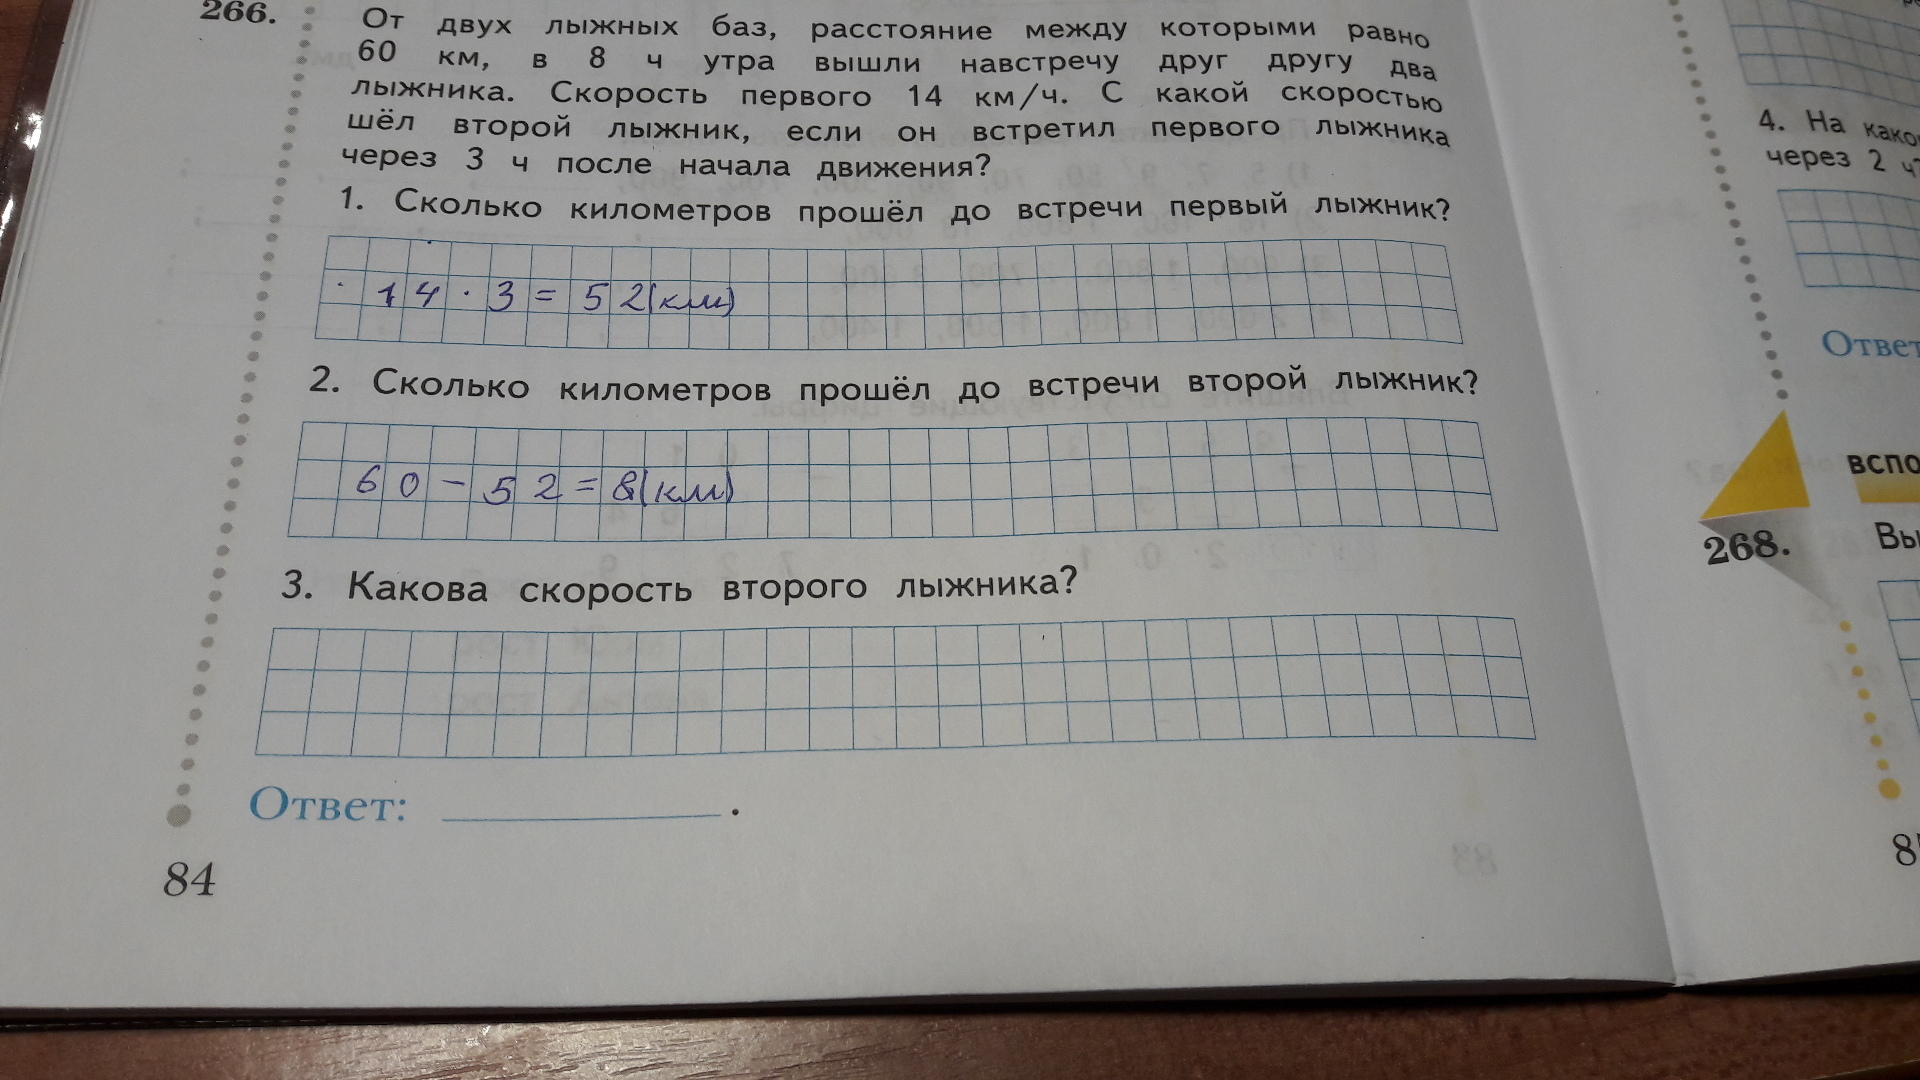 266. От двух лыжных баз, расстояние между которыми равно
60 км, в 8 ч утра вышли навстречу друг другу два
лыжника. Скорость первого 14 км/ч. С какой скоростью
шёл второй лыжник, если он встретил первого лыжника
через 3 ч после начала движения?
1. Сколько километров прошёл до встречи первый лыжник?
14 · 3 = 52(км)
2. Сколько километров прошёл до встречи второй лыжник?
60 - 52 = 8(км)
3. Какова скорость второго лыжника?
Ответ: .
84
4. На
через 2
268.